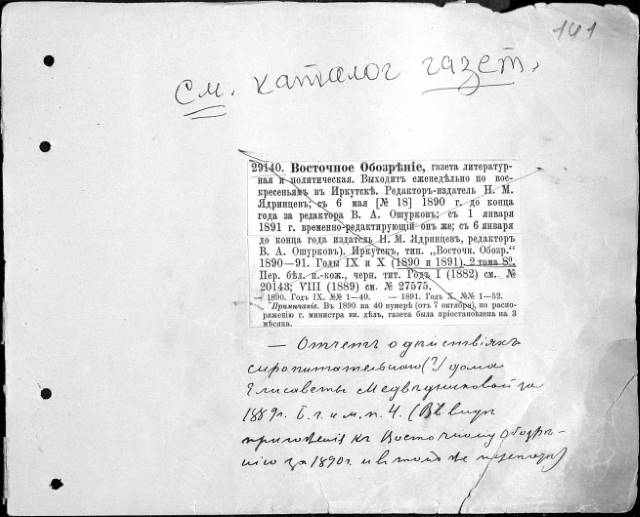 141
См. каталог газет.
29140. Восточное Обозрѣніе, газета литератур-
ная и политическая. Выходитъ еженедѣльно по вос-
кресеньямъ въ Иркутскѣ. Редакторъ-издатель Н. М.
Ядринцевъ; съ 6 мая [№ 18] 1890 г. до конца
года за редактора В. А. Ошурковъ; съ 1 января
1891 г. временно-редактирующій онъ же; съ 6 января
до конца года издатель Н. М. Ядринцевъ, редакторъ
В. А. Ошурковъ). Иркутскъ, тип. „Восточн. Обозр.“
1890—91. Годы IX и X (1890 и 1891). 2 тома 8°.
Пер. бѣл. п.-кож., черн. тит. Годъ I (1882) см. №
20143; VIII (1889) см. № 27575.
— 1890. Годъ IX. №№ 1—40. — 1891. Годъ X. №№ 1—52.
Примѣчаніе. Въ 1890 на 40 нумерѣ (отъ 7 октября), по распо-
ряженію г. министра вн. дѣлъ, газета была пріостановлена на 3
мѣсяца.
— Отчетъ о дѣйствіяхъ
сиропитательнаго (?) дома
Елисаветы Медвѣдниковой за
1889 г. Б. г. и м. п. 4. (Въ видѣ
приложенія къ Восточному Обозрѣ-
нію за 1890 г. и въ томъ же переплетѣ)